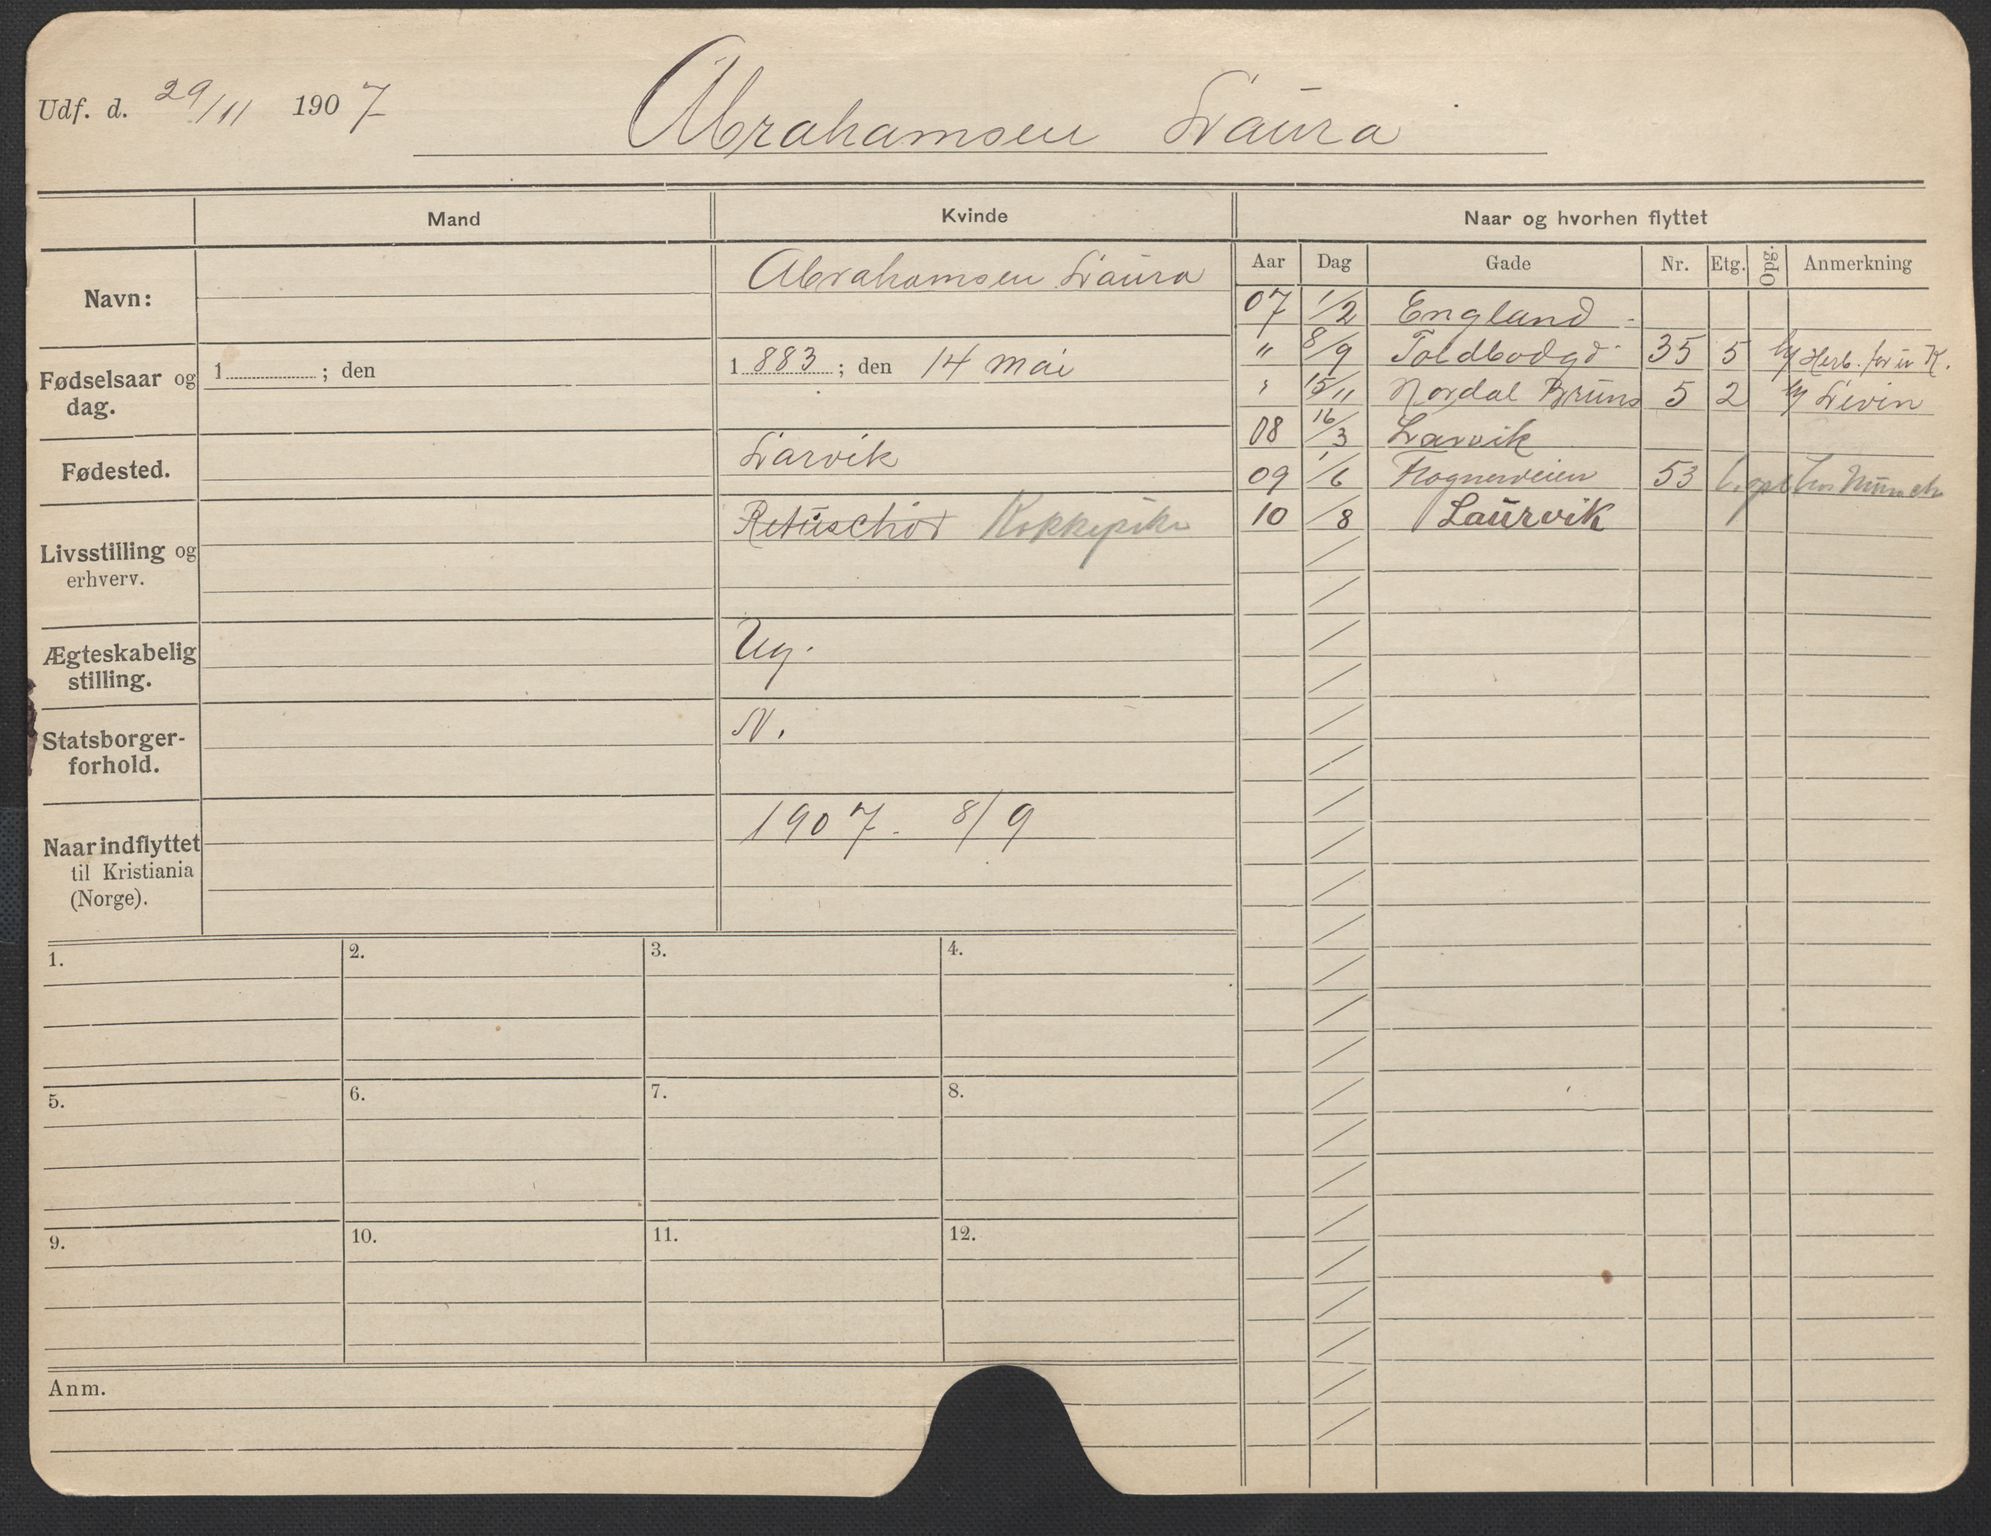 Udf. d. 29/11 1907 Abrahamsen Laura
Mand Kvinde Naar og hvorhen flyttet
Aar Dag Gade Nr. Etg. Opg. Anmerkning
Navn: Abrahamsen Laura
Fødselsaar og dag. 1 ; den 1883 ; den 14 mai
Fødested. Larvik
Livsstilling og erhverv. Retuschør Kokkepike
Ægteskabelig stilling. Ug.
Statsborger-forhold. N.
Naar indflyttet til Kristiania (Norge). 1907. 8/9
07 1/2 England
" 8/9 Toldbodgd 35 5 Herb. for u K.
" 15/11 Nordal Bruns 5 2 Levin
08 16/3 Larvik
09 1/6 Frognerveien 53 hos Munch
10 /8 Laurvik
1. 2. 3. 4.
5. 6. 7. 8.
9. 10. 11. 12.
Anm.